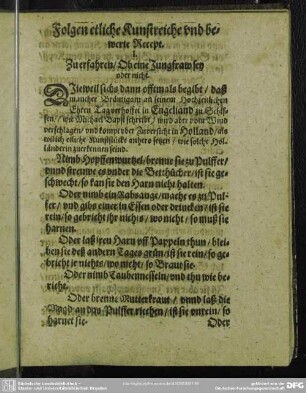 Folgen etliche Kunstreiche vnd be-
werte Recept.
1.
Zuerfahren / Ob eine Jungfraw sey
oder nicht.
DJeweil sichs dann offtmals begibt / daß
mancher Bräutigam an seinem Hochzeitlichen
Ehren Tag verhoffet in Engelland zu Schif-
fen / wie Michael Bapst schreibt / wird aber vom Wind
verschlagen / vnd kompt vber Zuversicht in Holland / als
wil ich etliche Kunststücke anhero setzen / wie solche Hol-
länderin zuerkennen seind.
Nimb Hopffenwurtzel / brenne sie zu Pulffer /
vnd strewe es vnder die Betthücher / ist sie ge-
schwecht / so kan sie den Harn nicht halten.
Oder nimb ein Agbauge / mache es zu Pul-
fer / vnd gibs einer in Essen oder drincken / ist sie
rein / so gebricht ihr nichts / wo nicht / so muß sie
harnen.
Oder laß jren Harn vff Pappeln thun / blei-
ben sie deß andern Tages grün / ist sie rein / so ge-
bricht jr nichts / wo nicht / so Braut sie.
Oder nimb Taubenneisseln / vnd thu wie be-
richt.
Oder brenne Mutterkraut / vnnd laß die
Magd an das Pulffer riechen / ist sie vnrein / so
harnet sie.
Oder